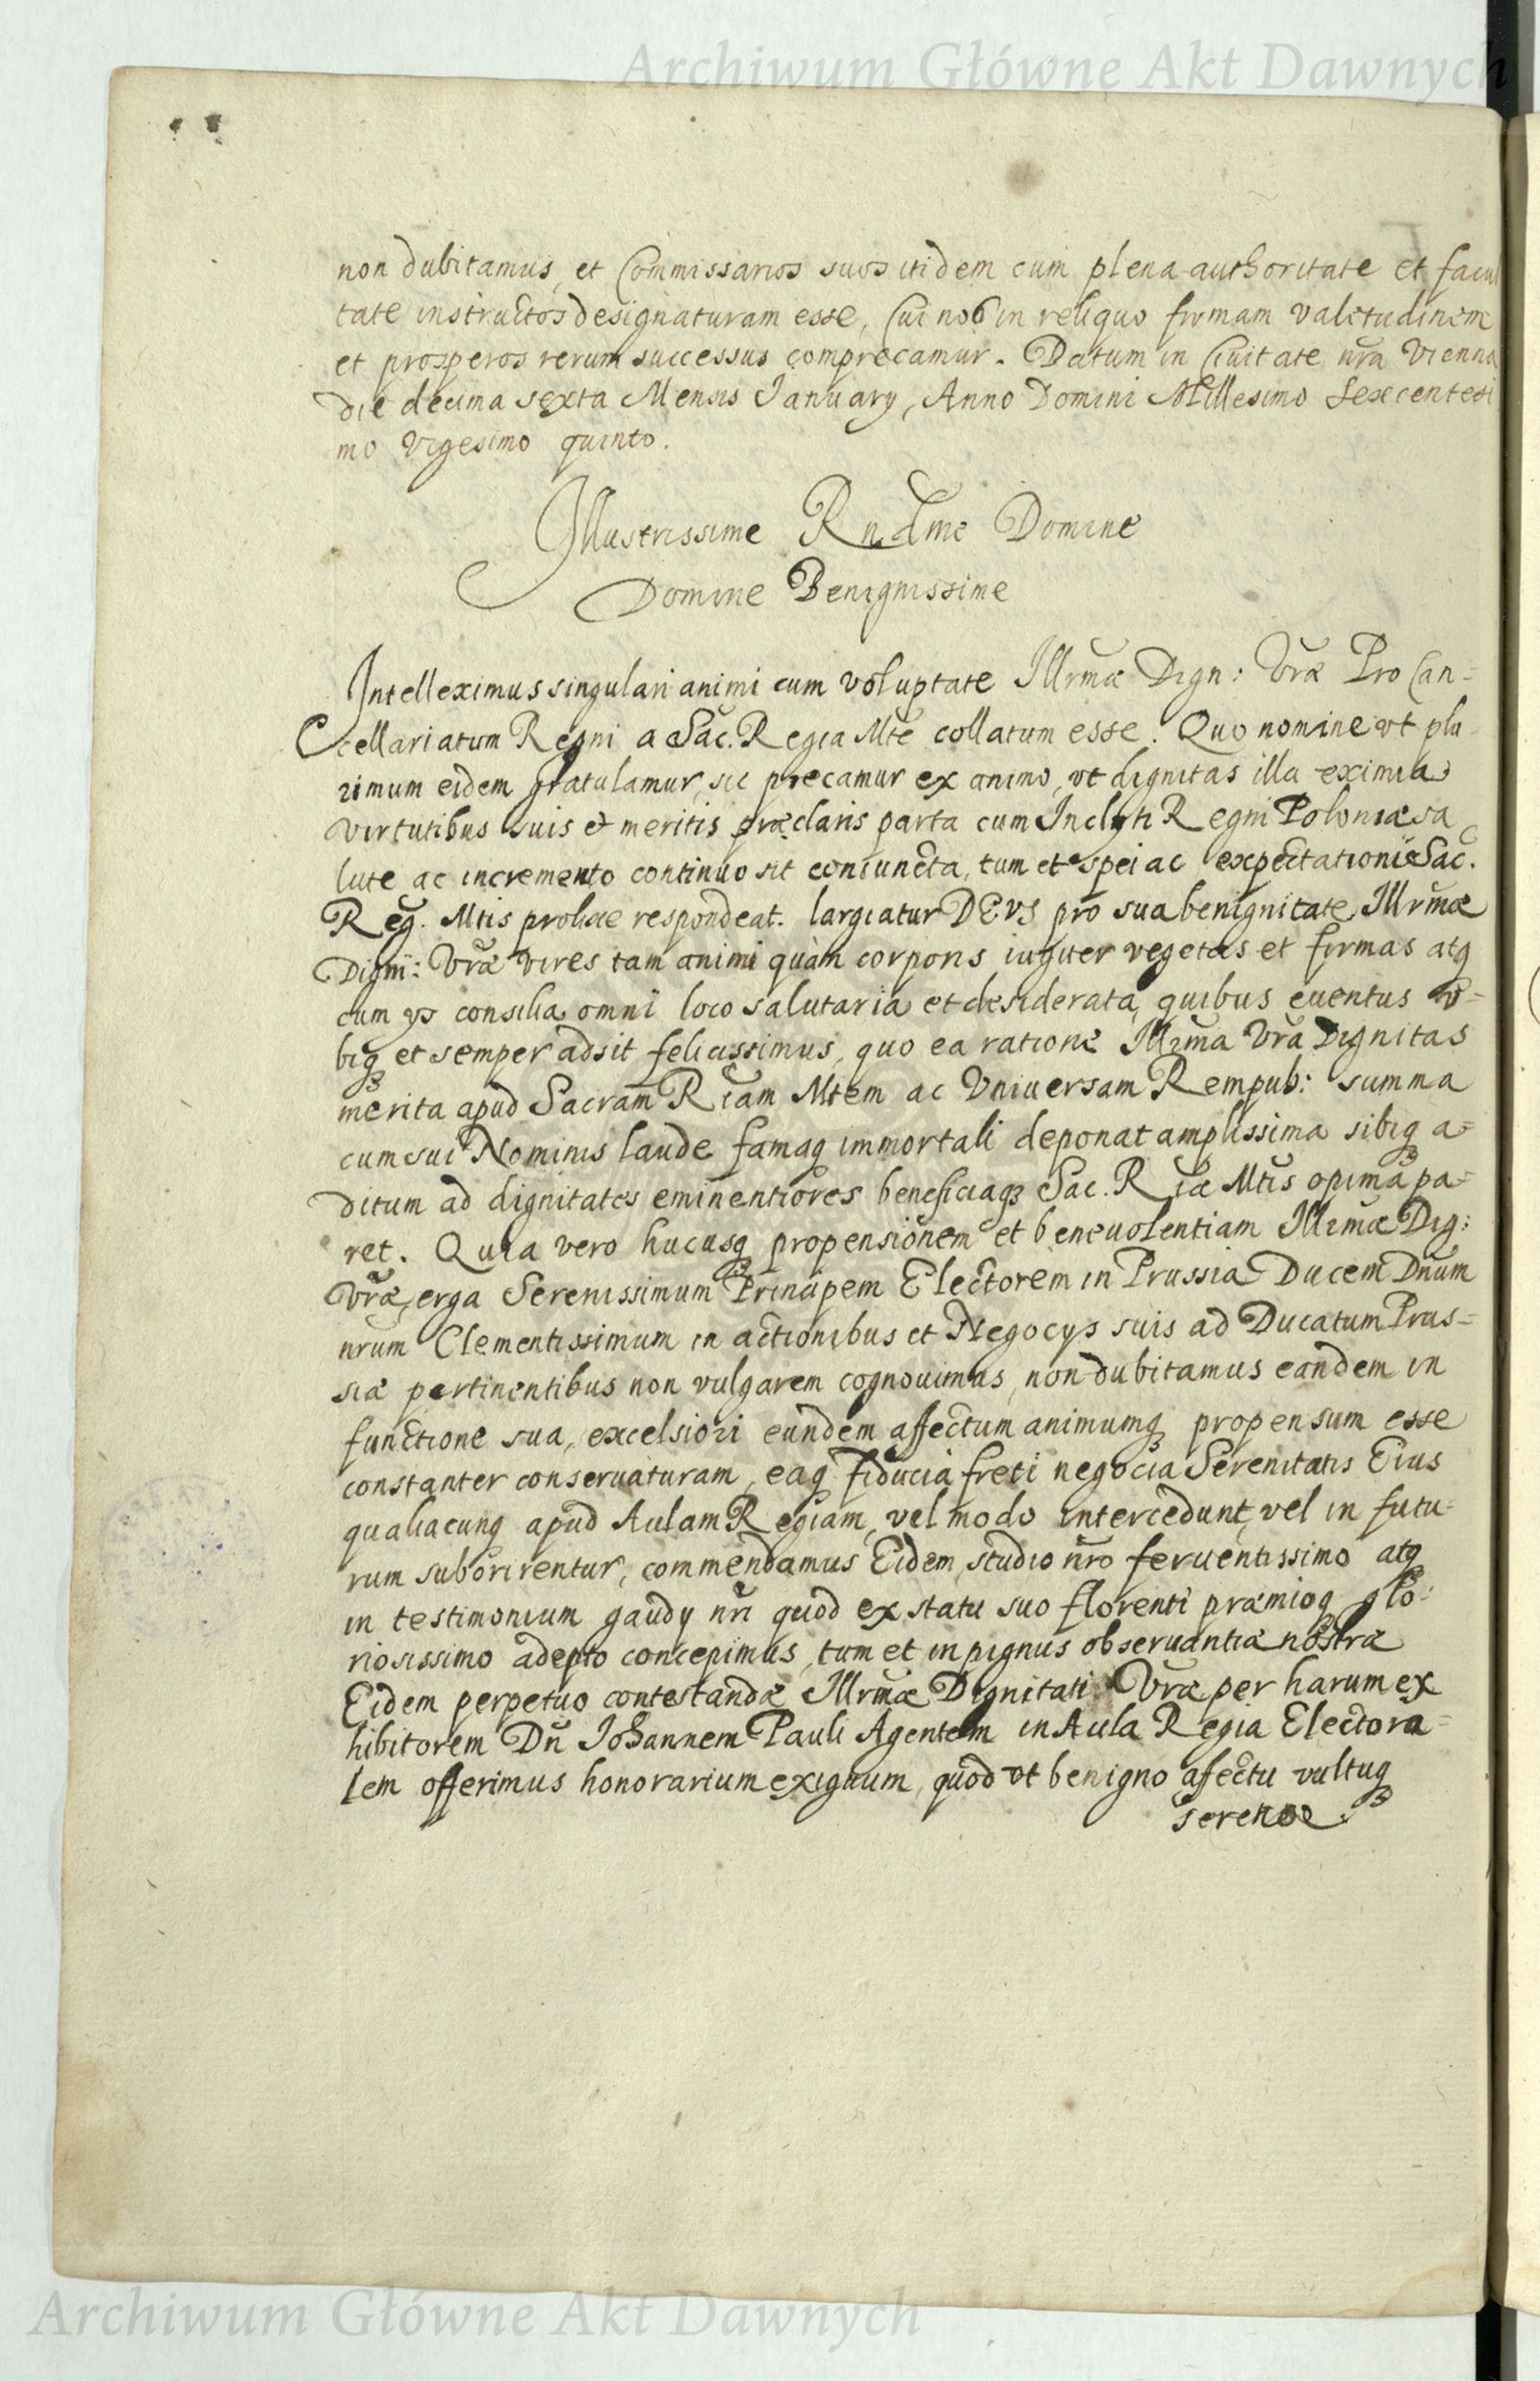 Archiwum Główne Akt Dawnych
non dubitamus, et Commissarios suos itidem cum plena authoritate et facul
tate instructos designaturam esse, Cui nos in reliquo firmam valetudinem
et prosperos rerum successus comprecamur. Datum in Ciuitate nr̃a Vienna
die decima sexta Mensis January, Anno Domini Millesimo Sexcentesi
mo Vigesimo quinto.
Illustrissime Rndme Domine
Domine Benignissime
Intelleximus singulari animi cum voluptate Illrmæ Dign: Vræ Pro Can=
cellariatum Regni a Sac. Regia Mte collatum esse. Quo nomine vt plu
rimum eidem gratulamur, sic precamur ex animo, vt dignitas illa eximia
virtutibus suis et meritis præclaris parta cum Inclyti Regni Poloniæ sa
lute ac incremento continuo sit coniuncta, tum et spei ac expectationi Sac.
Reg. Mtis probae respondeat. largiatur DEVS pro sua benignitate Illrmæ
Digni: Vræ vires tam animi quàm corporis iugiter vegetas et firmas atq
cum ys consilia omni loco salutaria et desiderata, quibus euentus v=
biq et semper adsit felicissimus, quo ea ratione Illrma Vra Dignitas
merita apud Sacram Riam Mtem ac Vniuersam Rempub: summa
cum sui Nominis laude famaq immortali deponat amplissima sibiq a=
ditum ad dignitates eminentiores beneficiaq Sac. Riæ Mtis opima pa=
ret. Quia vero hucusq propensionem et beneuolentiam Illrmæ Dig:
Vræ, erga Serenissimum Principem Electorem in Prussia Ducem Dnum
nrum Clementissimum in actionibus et Negocys suis ad Ducatum Prus=
siæ pertinentibus non vulgarem cognouimus, non dubitamus eandem in
functione sua, excelsiori eundem affectum animumq propensum esse
constanter conseruaturam, eaq fiducia freti negocia Serenitatis Eius
qualiacunq apud Aulam Regiam, vel modo intercedunt, vel in futu=
rum suborirentur, commendamus Eidem, studio nr̃o feruentissimo atq
in testimonium gaudy nr̃i quod ex statu suo florenti præmioq glo=
riosissimo adepto concepimus, tum et in pignus obseruantiæ nostræ
Eidem perpetuo contestandæ Illrmæ Dignitati Vræ per harum ex
hibitorem Dn̄ Johannem Pauli Agentem in Aula Regia Electora=
lem offerimus honorarium exiguum, quod vt benigno afectu vultuq
serenoe
Archiwum Główne Akt Dawnych